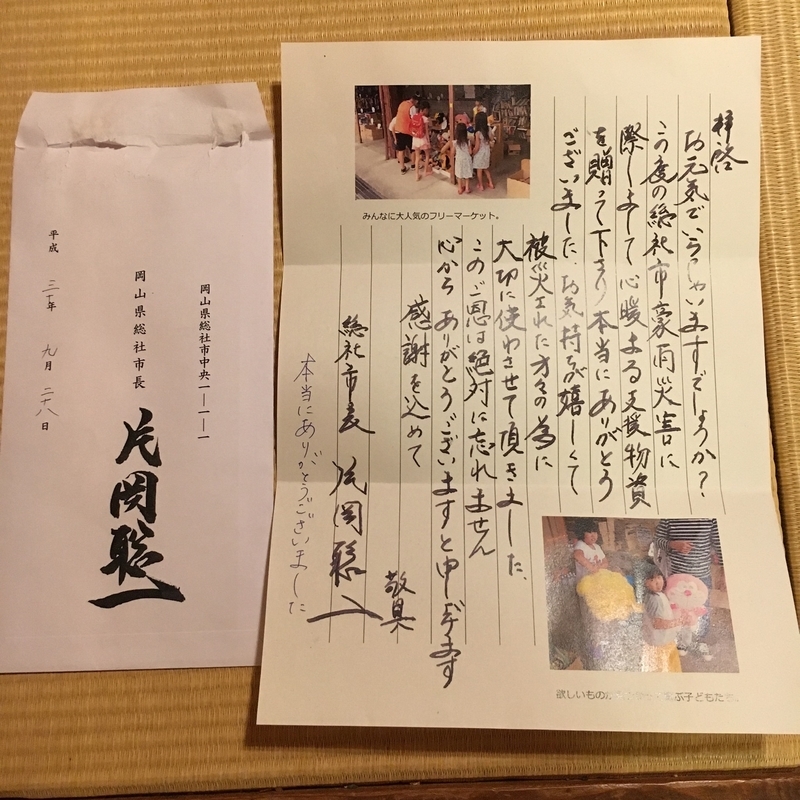 拝啓
お元気でいらしゃいますでしょうか?
この度の総社市豪雨災害に
際しまして心暖まる支援物資
を贈って下さり本当にありがとう
ございました。お気持ちが嬉しくて
被災された方々の為に
大切に使わさせて頂きました。
このご恩は絶対に忘れません
心からありがとうございますと申し上げます
感謝を込めて
敬具
総社市長 片岡聡一
本当にありがとうございました
みんなに大人気のフリーマーケット。
欲しいもの
ぶ子どもたち。
岡山県総社市中央一―一―一
岡山県総社市長
片岡聡一
平成 三十年 九月 二十八日